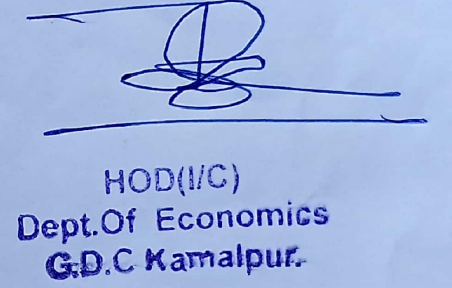 HOD(I/C)
Dept.Of Economics
G.D.C Kamalpur.